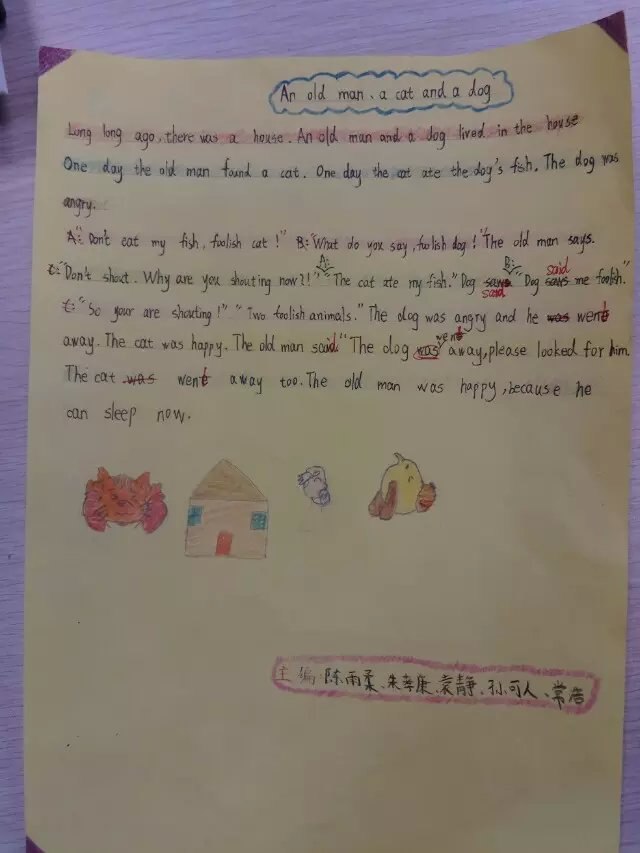 An old man、a cat and a dog
Long long ago, there was a house. An old man and a dog lived in the house
One day the old man found a cat. One day the cat ate the dog's fish. The dog was
angry.
A:"Don't eat my fish, foolish cat!" B:"What do you say, foolish dog!" The old man says.
C:"Don't shout. Why are you shouting now?!" A: "The cat ate my fish." Dog says said B: "Dog says said me foolish."
C:"So your are shouting!" "Two foolish animals." The dog was angry and he was went
away. The cat was happy. The old man said." The dog was went away, please looked for him.
The cat was went away too. The old man was happy, because he
can sleep now.
主编 陈雨柔、朱孝康、袁静、孙可人、常浩